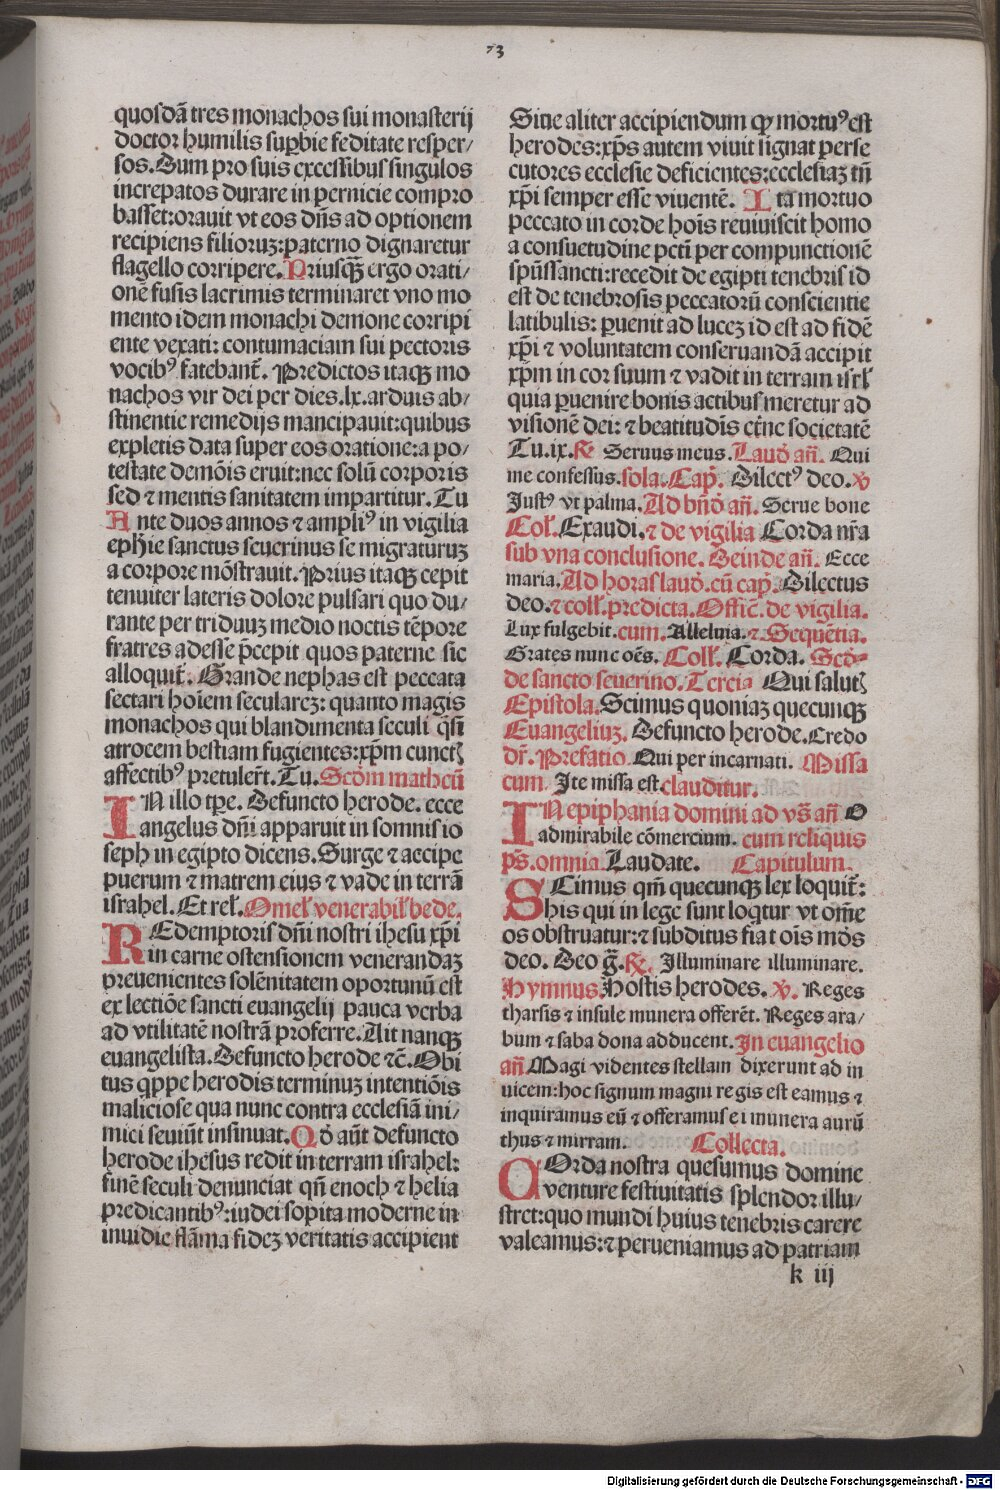 73
quosdā tres monachos sui monasterij
doctor humilis suꝑbie feditate resper/
sos. Dum pro suis excessibus singulos
increpatos durare in pernicie compro
basset: orauit vt eos dn̄s ad optionem
recipiens filioruꝫ: paterno dignaretur
flagello corripere. Priusqꝫ ergo orati/
onē fusis lacrimis terminaret vno mo
mento idem monachi demone corripi
ente vexati: contumaciam sui pectoris
vocibꝰ fatebant̄. Predictos itaqꝫ mo
nachos vir dei per dies .lx. arduis ab/
stinentie remedijs mancipauit: quibus
expletis data super eos oratione: a po/
testate demōis eruit: nec solū corporis
sed ⁊ mentis sanitatem impartitur. Tu
Ante duos annos ⁊ ampliꝰ in vigilia
ephīe sanctus seuerinus se migraturuꝫ
a corpore mōstrauit. Prius itaqꝫ cepit
tenuiter lateris dolore pulsari quo du/
rante per triduuꝫ medio noctis tēpore
fratres adesse p̄cepit quos paterne sic
alloquit̄. Grande nephas est peccata
sectari hoīem seculareꝫ: quanto magis
monachos qui blandimenta seculi q̄si
atrocem bestiam fugientes: xp̄m cunctꝭ
affectibꝰ pretulert̄. Tu. Scd̄m matheū
IN illo tp̄e. Defuncto herode. ecce
angelus dn̄i apparuit in somnis io
seph in egipto dicens. Surge ⁊ accipe
puerum ⁊ matrem eius ⁊ vade in terrā
israhel. Et rel̄. Omel̄ venerabil̄ bede.
REdemptoris dn̄i nostri ihesu xp̄i
in carne ostensionem venerandaꝫ
preuenientes solēnitatem oportunū est
ex lectiōe sancti euangelij pauca verba
ad vtilitatē nostrā proferre. Ait nanqꝫ
euangelista. Defuncto herode ⁊c̄. Obi
tus q̄ppe herodis terminuꝫ intentiōis
maliciose qua nunc contra ecclesiā ini/
mici seuiūt insinuat. Qd̄ aūt defuncto
herode ihesus redit in terram israhel:
finē seculi denunciat qn̄ enoch ⁊ helia
predicantibꝰ: iudei sopita moderne in
inuidie flāma fideꝫ veritatis accipient
Siue aliter accipiendum ꝙ mortuꝰ est
herodes: xp̄s autem viuit signat perse
cutores ecclesie deficientes: ecclesiaꝫ tn̄
xp̄i semper esse viuentē. Ita mortuo
peccato in corde hoīs reuiuiscit homo
a consuetudine pcti per compunctionē
spūssancti: recedit de egipti tenebris id
est de tenebrosis peccatorū conscientie
latibulis: ꝑuenit ad luceꝫ id est ad fidē
xp̄i ⁊ voluntatem conseruandā accipit
xp̄m in cor suum ⁊ vadit in terram isrl̄
quia ꝑuenire bonis actibus meretur ad
visionē dei: ⁊ beatitudīs et̄ne societatē
Tu. ix. ℟ Seruus meus. Laud̄ an̄. Qui
me confessus. sola. Cap̄. Dilectꝰ deo. ℣
Justꝰ vt palma. Ad bn̄d̄ an̄. Serue bone
Col̄. Exaudi. ⁊ de vigilia Corda nr̄a
sub vna conclusione. Deinde an̄. Ecce
maria. Ad horas laud̄. cū cap̄. Dilectus
deo. ⁊ coll̄. predicta. Offic̄. de vigilia.
Lux fulgebit. cum. Alleluia. ⁊ Sequētia.
Grates nunc oēs. Coll̄. Corda. Scd̄-
de sancto seuerino. Tercia Qui salutꝭ
Epistola. Scimus quoniaꝫ quecunqꝫ
Euangeliuꝫ. Defuncto herode. Credo
dr̄. Prefatio Qui per incarnati. Missa
cum Ite missa est. clauditur.
IN epiphania domini ad vs̄ an̄ O
admirabile cōmercium. cum reliquis
ps̄. omnia Laudate. Capitulum.
SCimus qm̄ quecunqꝫ lex loquit̄:
his qui in lege sunt loq̄tur vt om̄e
os obstruatur: ⁊ subditus fiat oīs mōs
deo. Deo ḡ. ℟. Illuminare illuminare.
Hymnus. Hostis herodes. ℣. Reges
tharsis ⁊ insule munera offerēt. Reges ara/
bum ⁊ saba dona adducent. In euangelio
an̄ Magi videntes stellam dixerunt ad in
uicem: hoc signum magni regis est eamus ⁊
inquiramus eū ⁊ offeramus ei munera aurū
thus ⁊ mirram. Collecta.
COrda nostra quesumus domine
venture festiuitatis splendor illu/
stret: quo mundi huius tenebris carere
valeamus: ⁊ perueniamus ad patriam
k iij
Digitalisierung gefördert durch die Deutsche Forschungsgemeinschaft - DFG